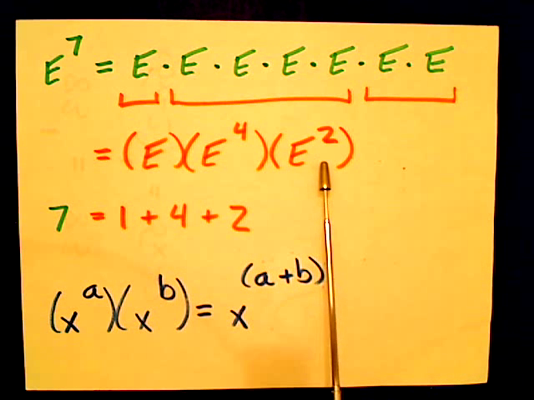 E⁷ = E · E · E · E · E · E · E
= (E)(E⁴)(E²)
7 = 1 + 4 + 2
(xᵃ)(xᵇ) = x⁽ᵃ⁺ᵇ⁾